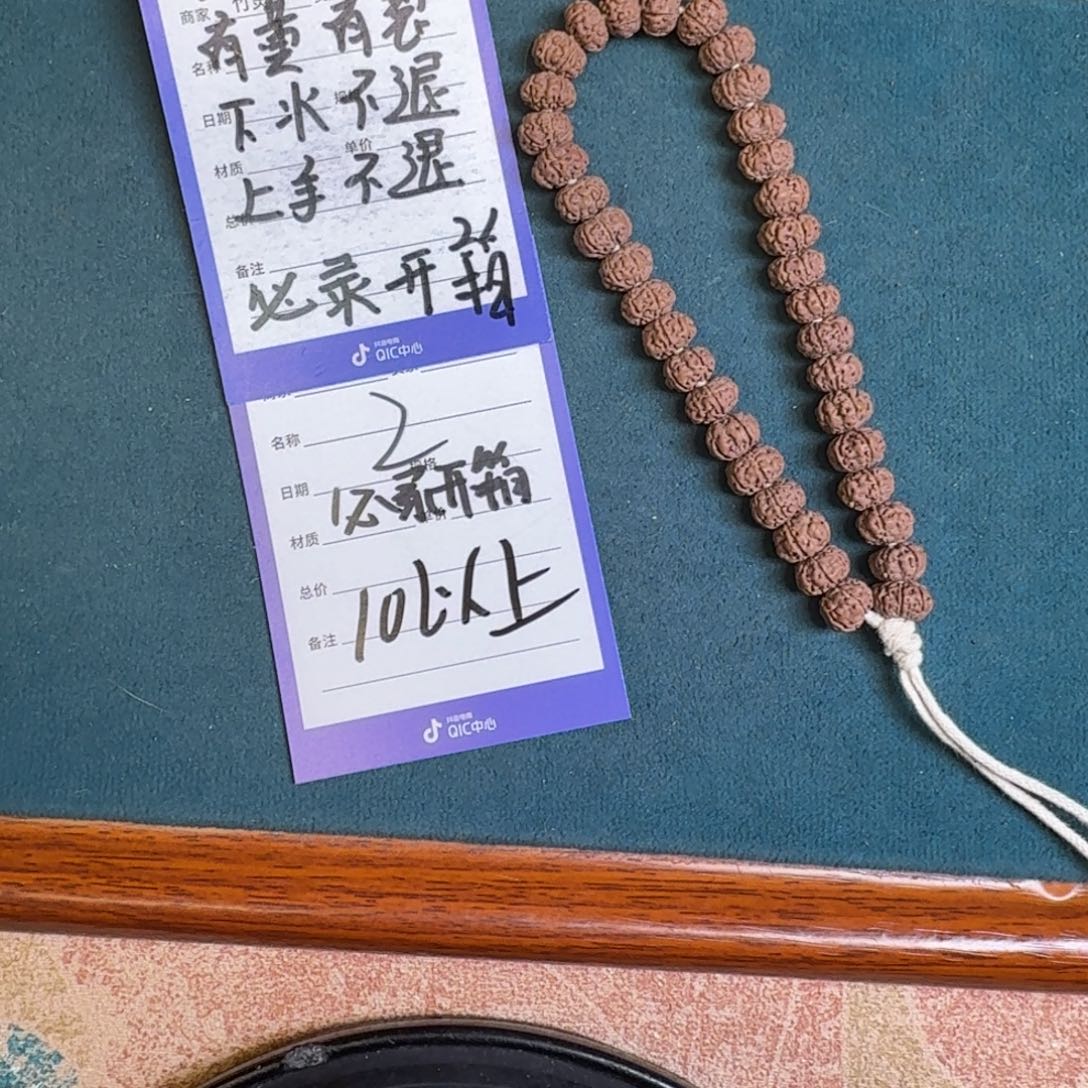 商家
有重有裂
名称
下水不退
日期
材质 单价
上手不退
总价
26
备注
必录开箱
抖音电商
QIC中心
2
名称
规格
日期
必录开箱
材质 单价
总价
10以上
备注
抖音电商
QIC中心